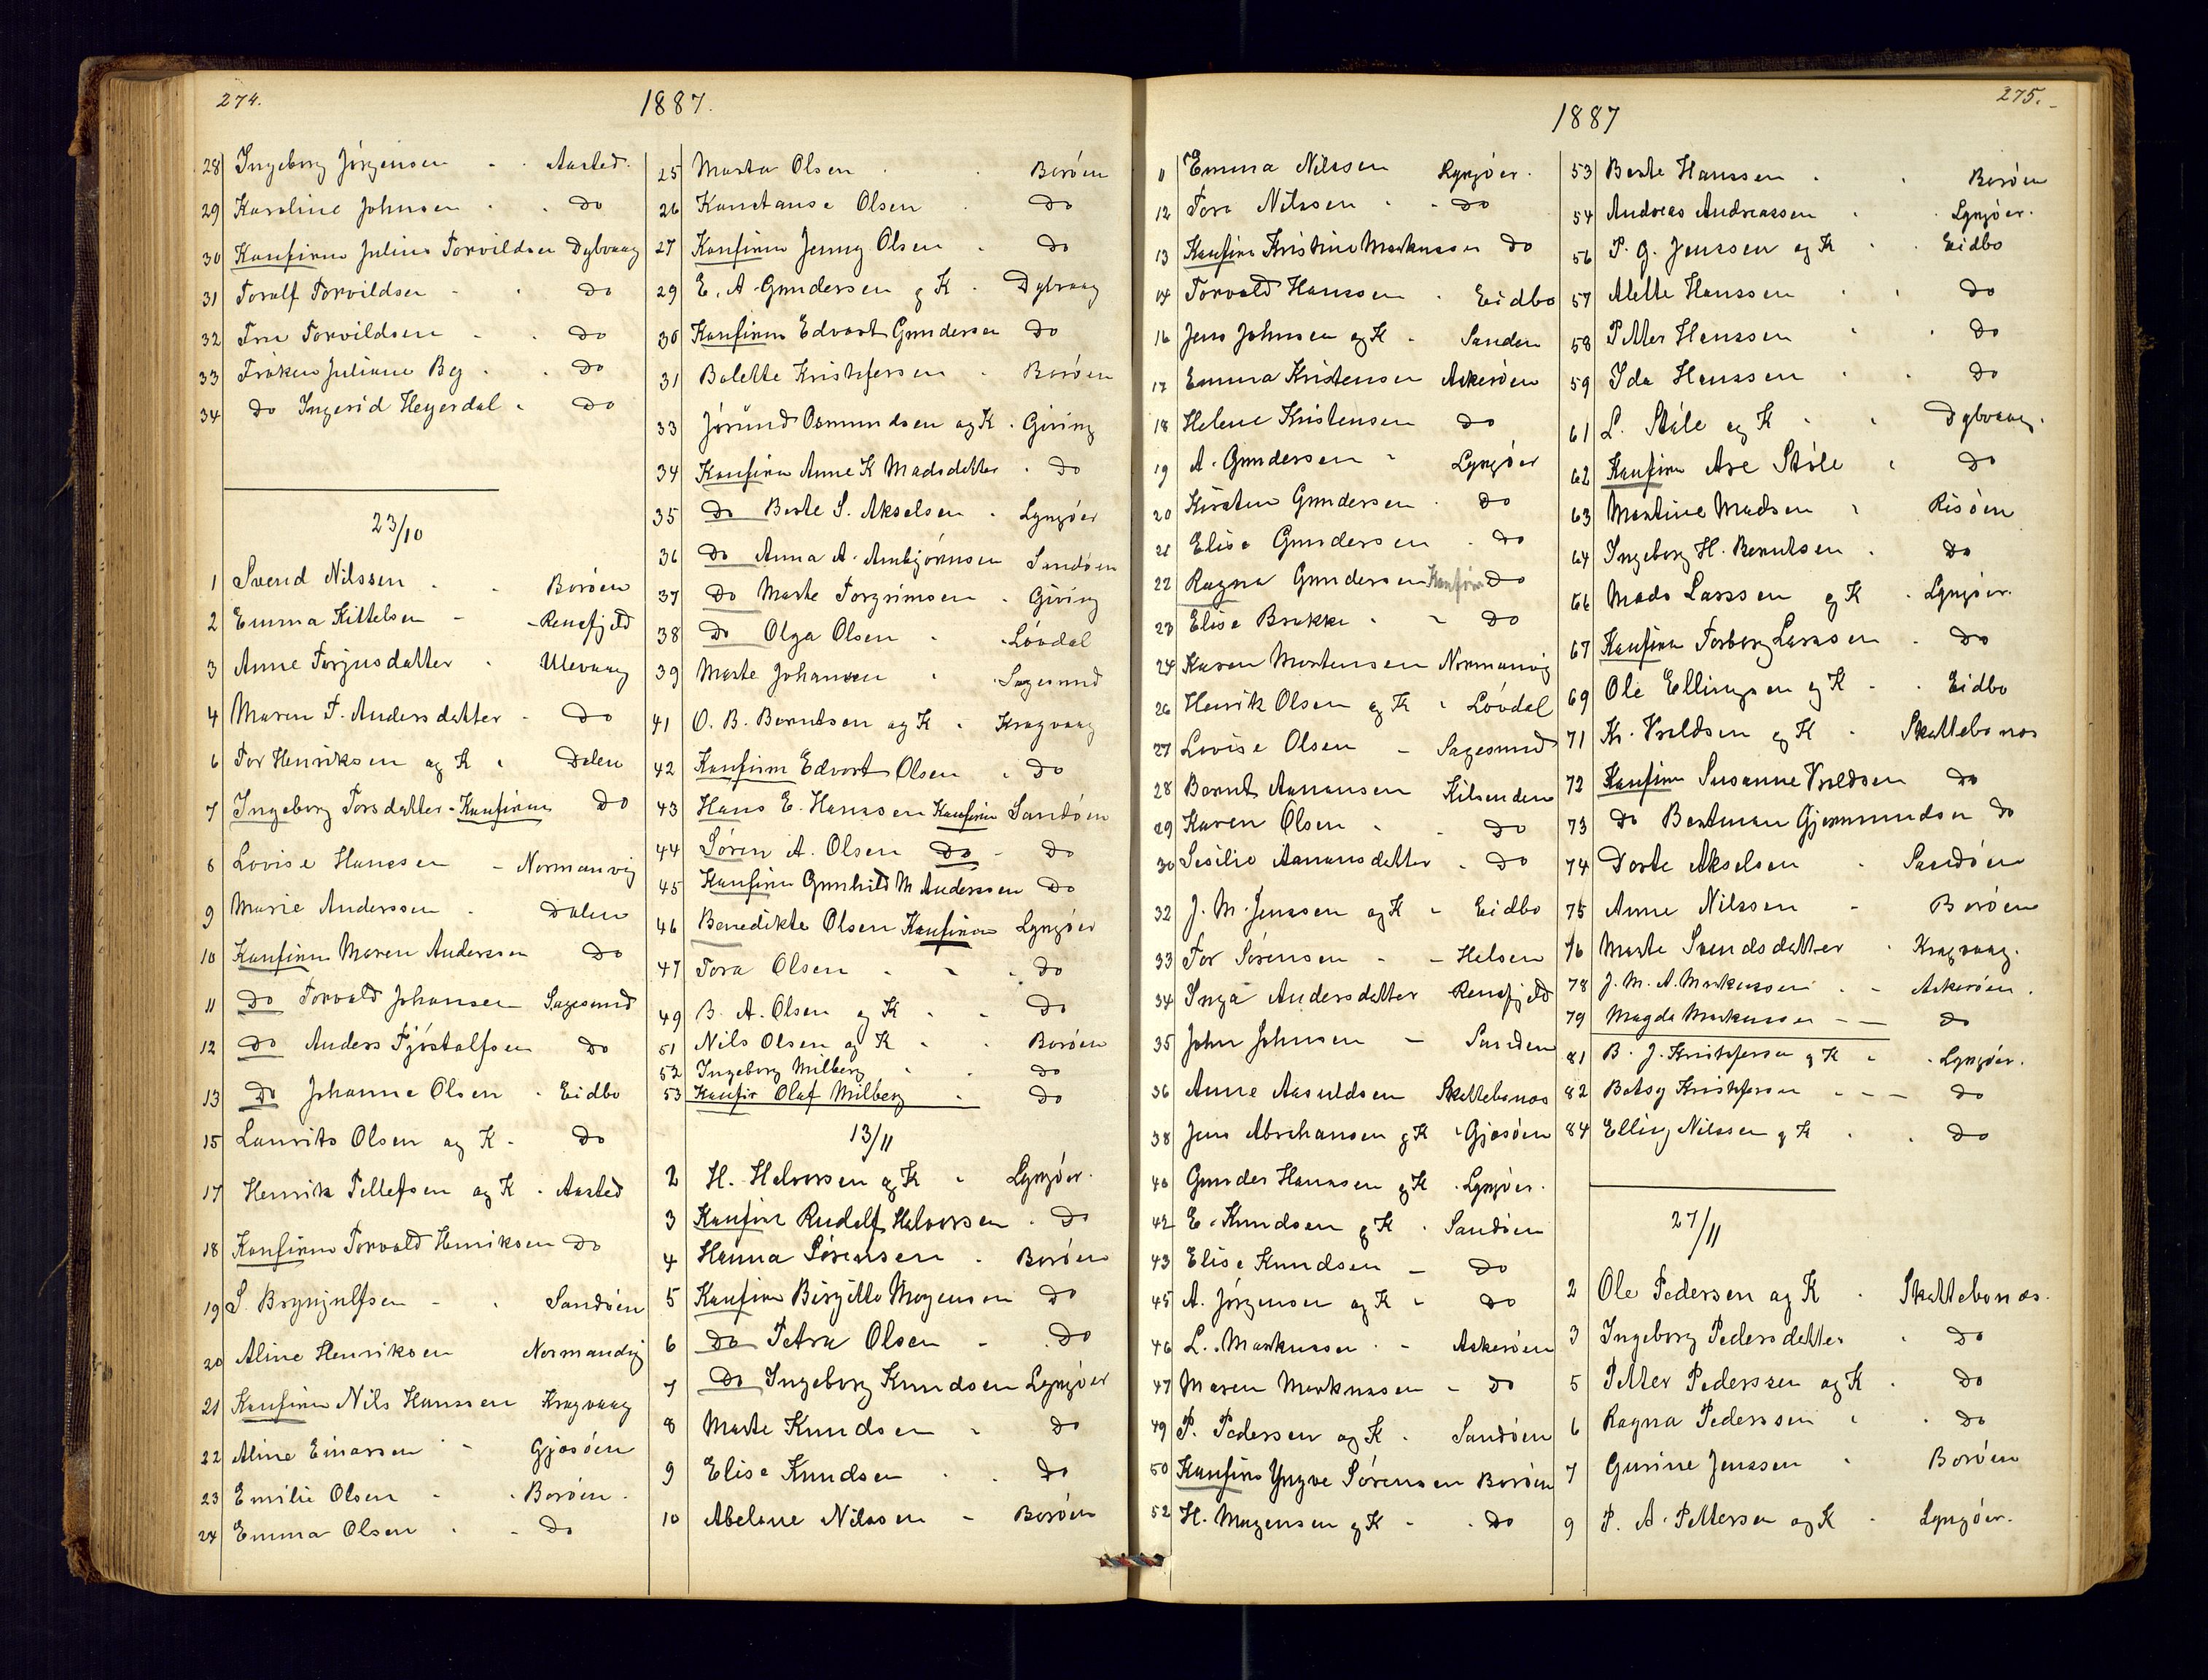 274.
1887.
28 Ingeborg Jørgensen - - Aasted.
29 Karoline Johnsen - - Do
30 Konfirm Julius Torvildsen Dybvaag
31 Toralf Torvildsen - - Do
32 Fru Torvildsen - - Do
33 Frøken Juliane Bg - - Do
34 Do Ingerid Heyerdal - Do
23/10
1 Svend Nilssen - - Borøen
2 Emma Kittelsen - - Renefjeld
3 Anne Terjusdatter - Ulevaag
4 Maren T. Andersdatter - Do
6 Tor Henriksen og K - Dalen
7 Ingeborg Torsdatter - Konfirm Do
8 Lovise Hanssen - Normanvig
9 Marie Anderssen - Dalen
10 Konfirm Maren Anderssen Do
11 Do Torvald Johansen Sagesund
12 Do Anders Fjøstolfsen Do
13 Do Johanne Olsen - Eidbo
15 Laurits Olsen og K - Do
17 Henrik Tellefsen og K - Aasted
18 Konfirm Torvald Henriksen Do
19 S. Brynjulfsen - - Sandøen
20 Aline Henriksen Normandvig
21 Konfirm Nils Hanssen Kragvaag
22 Aline Einarsen - Gjøsøen
23 Emilie Olsen - - Borøen -
24 Emma Olsen - - Do
25 Marta Olsen - - Borøen
26 Konstanse Olsen - Do
27 Konfirm Jenny Olsen - Do
29 E. A. Gundersen og K - Dybvaag
30 Konfirm Edvart Gundersen Do
31 Bolette Kristofersen - Borøen
33 Jørund Osmundsen og K - Giving
34 Konfirm Anne K Madsdatter - Do
35 Do Berte S. Akselsen - Lyngøer
36 Do Anna A. Anbjørnsen Sandøen
37 Do Marte Torgrimsen - Giving
38 Do Olga Olsen - - Løvdal
39 Marte Johansen - - Sagesund
41 O. B. Berntsen og K - Kragvaag
42 Konfirm Edvart Olsen - Do
43 Hans E. Hanssen Konfirm Sandøen
44 Søren A. Olsen Do - Do
45 Konfirm Gunhild M Anderssen Do
46 Benedikte Olsen Konfirm Lyngøer
47 Tora Olsen - - - Do
49 B. A. Olsen og K - - Do
51 Nils Olsen og K - - Borøen
52 Ingeborg Milberg - - Do
53 Konfir Olaf Milberg - Do
13/11
2 H. Halvorsen og K - Lyngøer.
3 Konfirm Rudolf Halvorsen - Do
4 Hanna Sørensen - Borøen
5 Konfirm Birgitte Mogensen Do
6 Do Petra Olsen - - Do
7 Do Ingeborg Knudsen Lyngøer
8 Marte Knudsen - Do
9 Elise Knudsen - - Do
10 Abelone Nilssen - Borøen
275.
1887
11 Emma Nilssen Lyngøer.
12 Tora Nilssen - - Do
13 Konfirm Kristine Markussen Do
14 Torvald Hanssen - Eidbo
16 Jens Johnsen og K - Sanden
17 Emma Kristensen Askerøen
18 Helene Kristensen Do
19 A. Gundersen - Lyngøer
20 Kirsten Gundersen - Do
21 Elise Gundersen - Do
22 Ragna Gundersen Konfirm Do
23 Elise Brekke - - Do
24 Karen Mortensen Normanvig
26 Henrik Olsen og K - Løvdal
27 Lovise Olsen - Sagesund
28 Bernt Aanonsen Kilsenden
29 Karen Olsen - - Do
30 Sesilie Aanonsdatter - Do
32 J. M. Jenssen og K - Eidbo
33 Tor Sørensen - - Helsen
34 Inga Andersdatter Renefjeld
35 John Johnsen - Sanden
36 Anne Aasuldsen Skottebonæs
38 Jens Abrahamsen og K - Gjøsøen
40 Gunder Hanssen og K - Lyngøer.
42 E. Knudsen og K - Sandøen
43 Elise Knudsen - Do
45 A. Jørgensen og K - Do
46 L. Markussen - - Askerøen
47 Maren Markussen - Do
49 P. Pedersen og K - Sandøen
50 Konfirm Yngve Sørensen Borøen
52 H. Mogensen og K - - Do
53 Berte Hanssen - - Borøen
54 Andreas Andreassen - - Lyngøer.
56 P. G. Jenssen og K - - Eidbo
57 Alette Hanssen - - Do
58 Petter Hanssen - - Do
59 Ida Hanssen - - Do
61 L. Støle og K - - Dybvaag.
62 Konfirm Ase Støle - Do
63 Martine Madsen - Risøen
64 Ingeborg H. Berntsen - Do
66 Mads Larssen og K - Lyngøer.
67 Konfirm Torborg Larssen - Do
69 Ole Ellingsen og K - - Eidbo
71 Kr. Vraldsen og K - Skottebonæs
72 Konfirm Susanne Vraldsen Do
73 Do Bertman Gjermundsen Do
74 Dorte Akselsen - Sandøen
75 Anne Nilssen - Borøen
76 Marte Svendsdatter - Kragvaag.
78 J. M. A. Markussen - - Askerøen.
79 Magda Markussen - - Do
81 B. J. Kristofersen og K - - Lyngøer.
82 Betsy Kristofersen - - - Do
84 Elling Nilssen og K - - Do
27/11
2 Ole Pedersen og K - Skottebonæs.
3 Ingeborg Pedersdatter - Do
5 Petter Pederssen og K - Do
6 Ragna Pederssen - - Do
7 Gurine Jenssen - Borøen
9 P. A. Pettersen og K - Lyngøer.